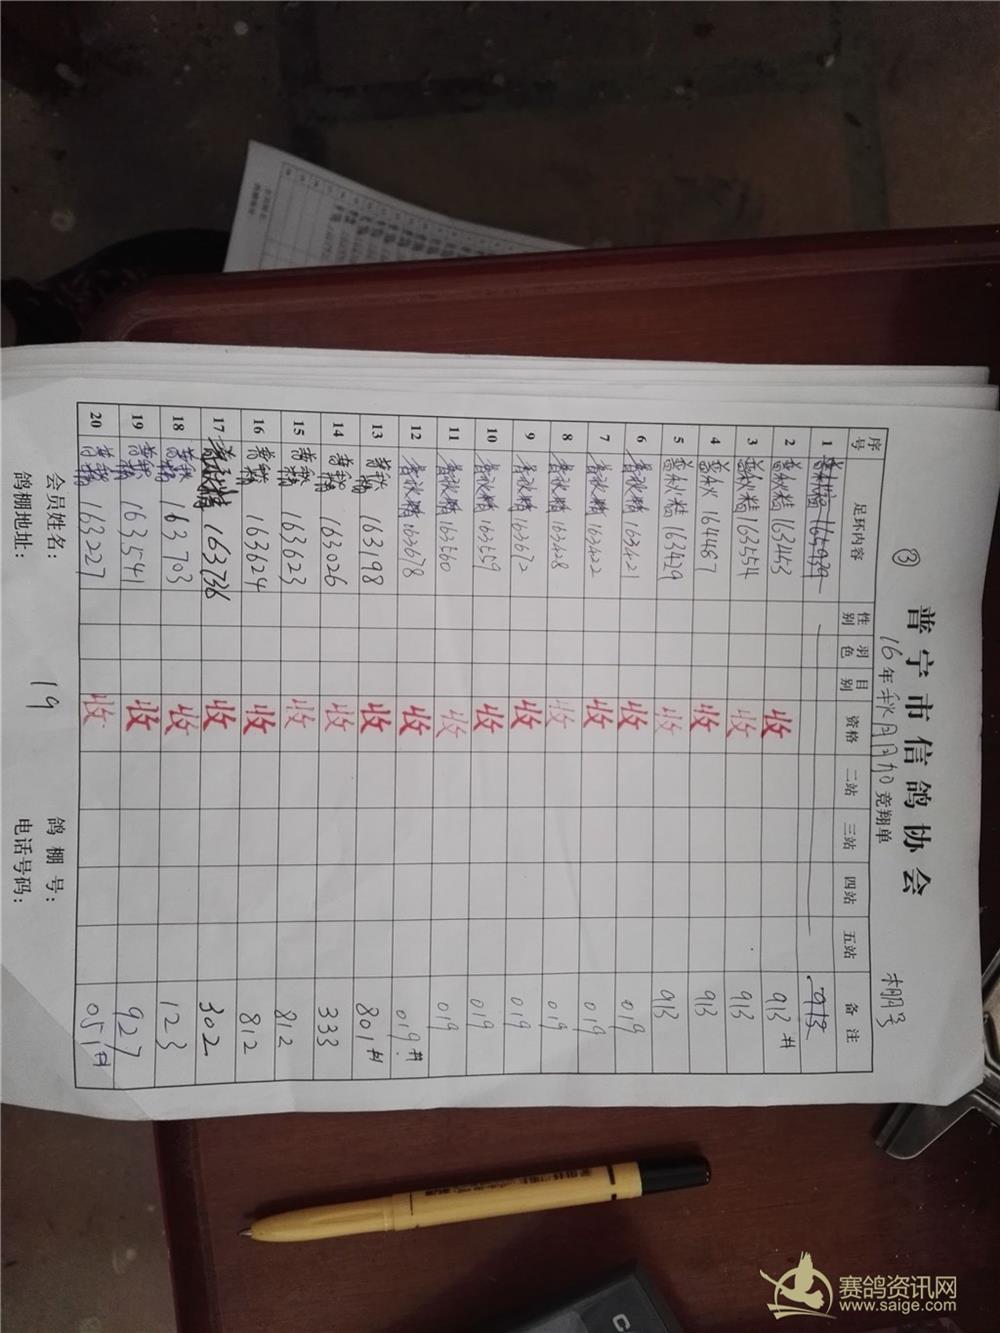 ③ 普宁市信鸽协会
16年秋 竞翔单 棚号
序号 足环内容 性别 羽色 目别 资格 二站 三站 四站 五站 备注
1 913
2 普秋精 163453 收 913 #
3 普秋精 163554 收 913
4 普秋 164487 收 913
5 普秋精 163429 收 913
6 普秋精 163421 收 019
7 普秋精 163422 收 019
8 普秋精 163428 收 019
9 普秋精 163672 收 019
10 普秋精 163559 收 019
11 普秋精 163560 收 019
12 普秋精 163678 收 019 #
13 普精 163198 收 801 #
14 普精 163026 收 333
15 普精 163623 收 812
16 普精 163624 收 812
17 普秋精 163736 收 302
18 普精 163703 收 123
19 普精 163541 收 927
20 普精 163227 收 051
会员姓名： 19 鸽棚号：
鸽棚地址： 电话号码：
赛鸽资讯网
www.saige.com